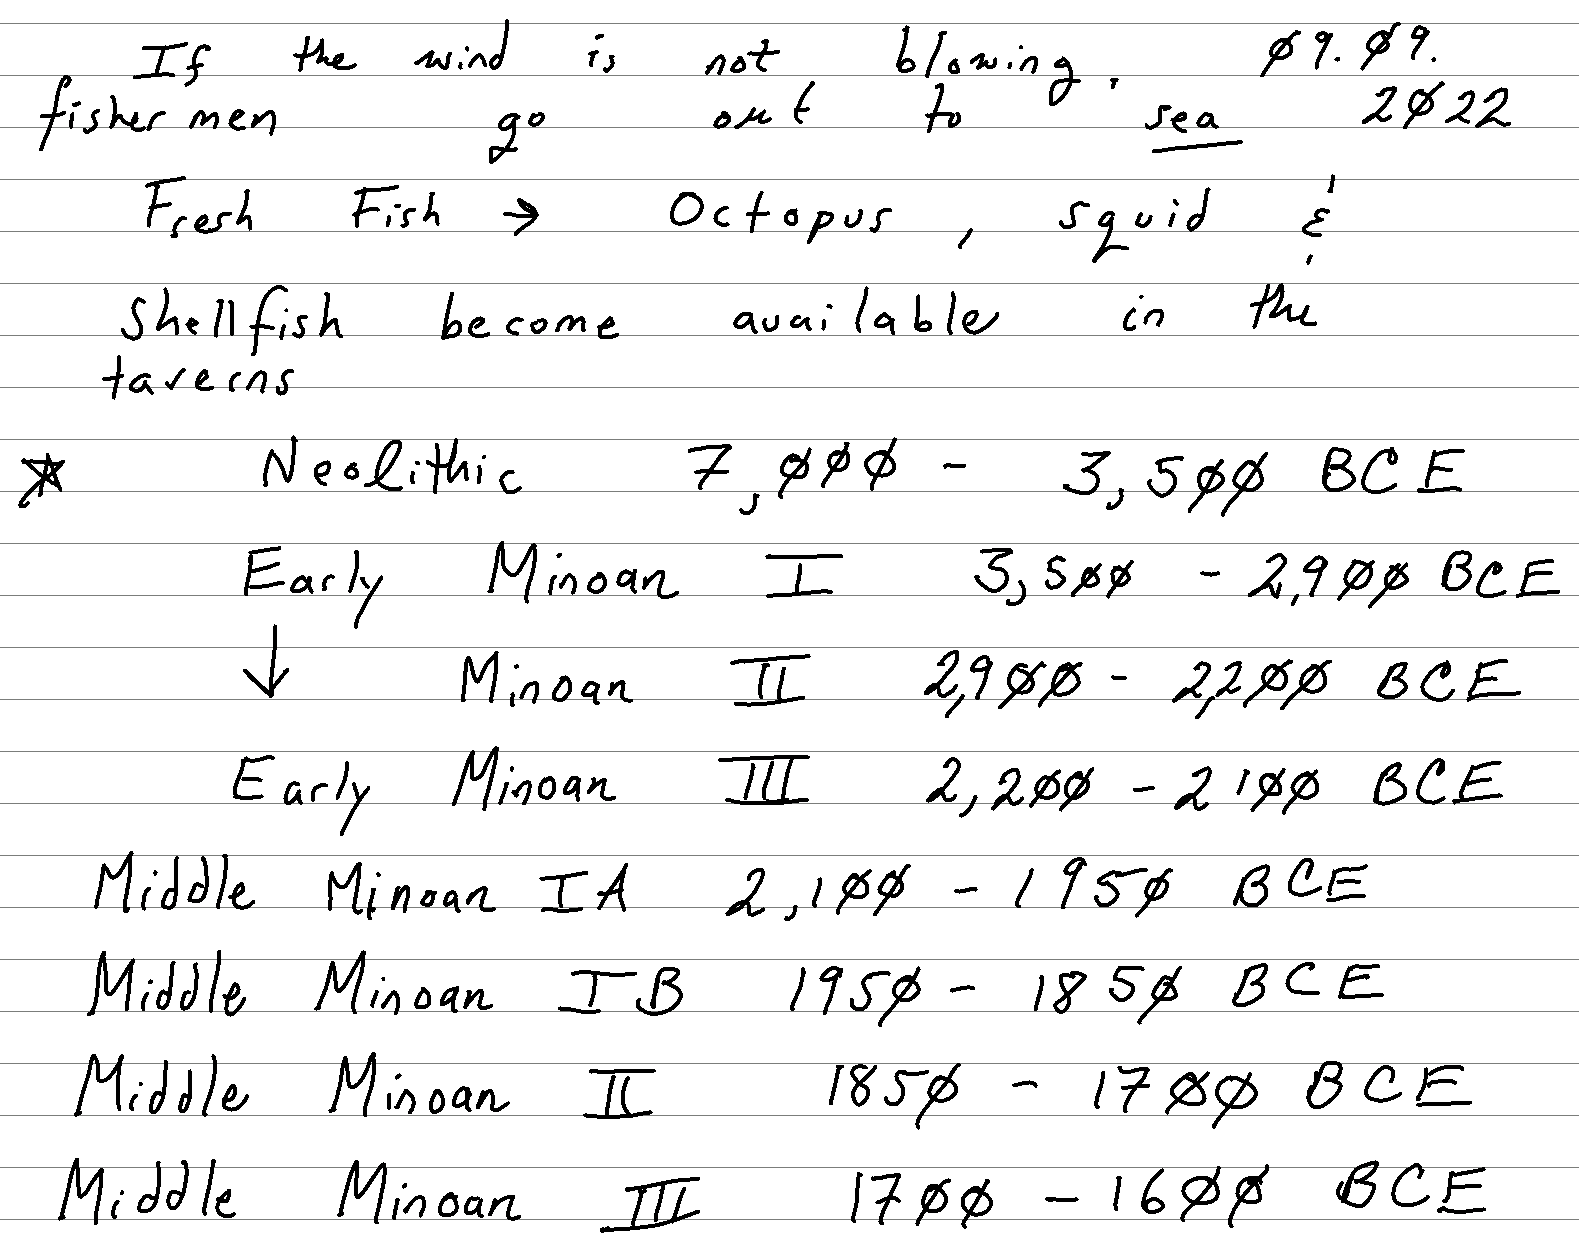 If the wind is not blowing, Ø9.Ø9.
fishermen go out to sea 2Ø22
Fresh Fish → Octopus, squid &
Shellfish become available in the
taverns
☆ Neolithic 7,ØØØ - 3,5ØØ BCE
Early Minoan I 3,5ØØ - 2,9ØØ BCE
↓ Minoan II 2,9ØØ - 2,2ØØ BCE
Early Minoan III 2,2ØØ - 21ØØ BCE
Middle Minoan IA 2,1ØØ - 195Ø BCE
Middle Minoan IB 195Ø - 185Ø BCE
Middle Minoan II 185Ø - 17ØØ BCE
Middle Minoan III 17ØØ - 16ØØ BCE